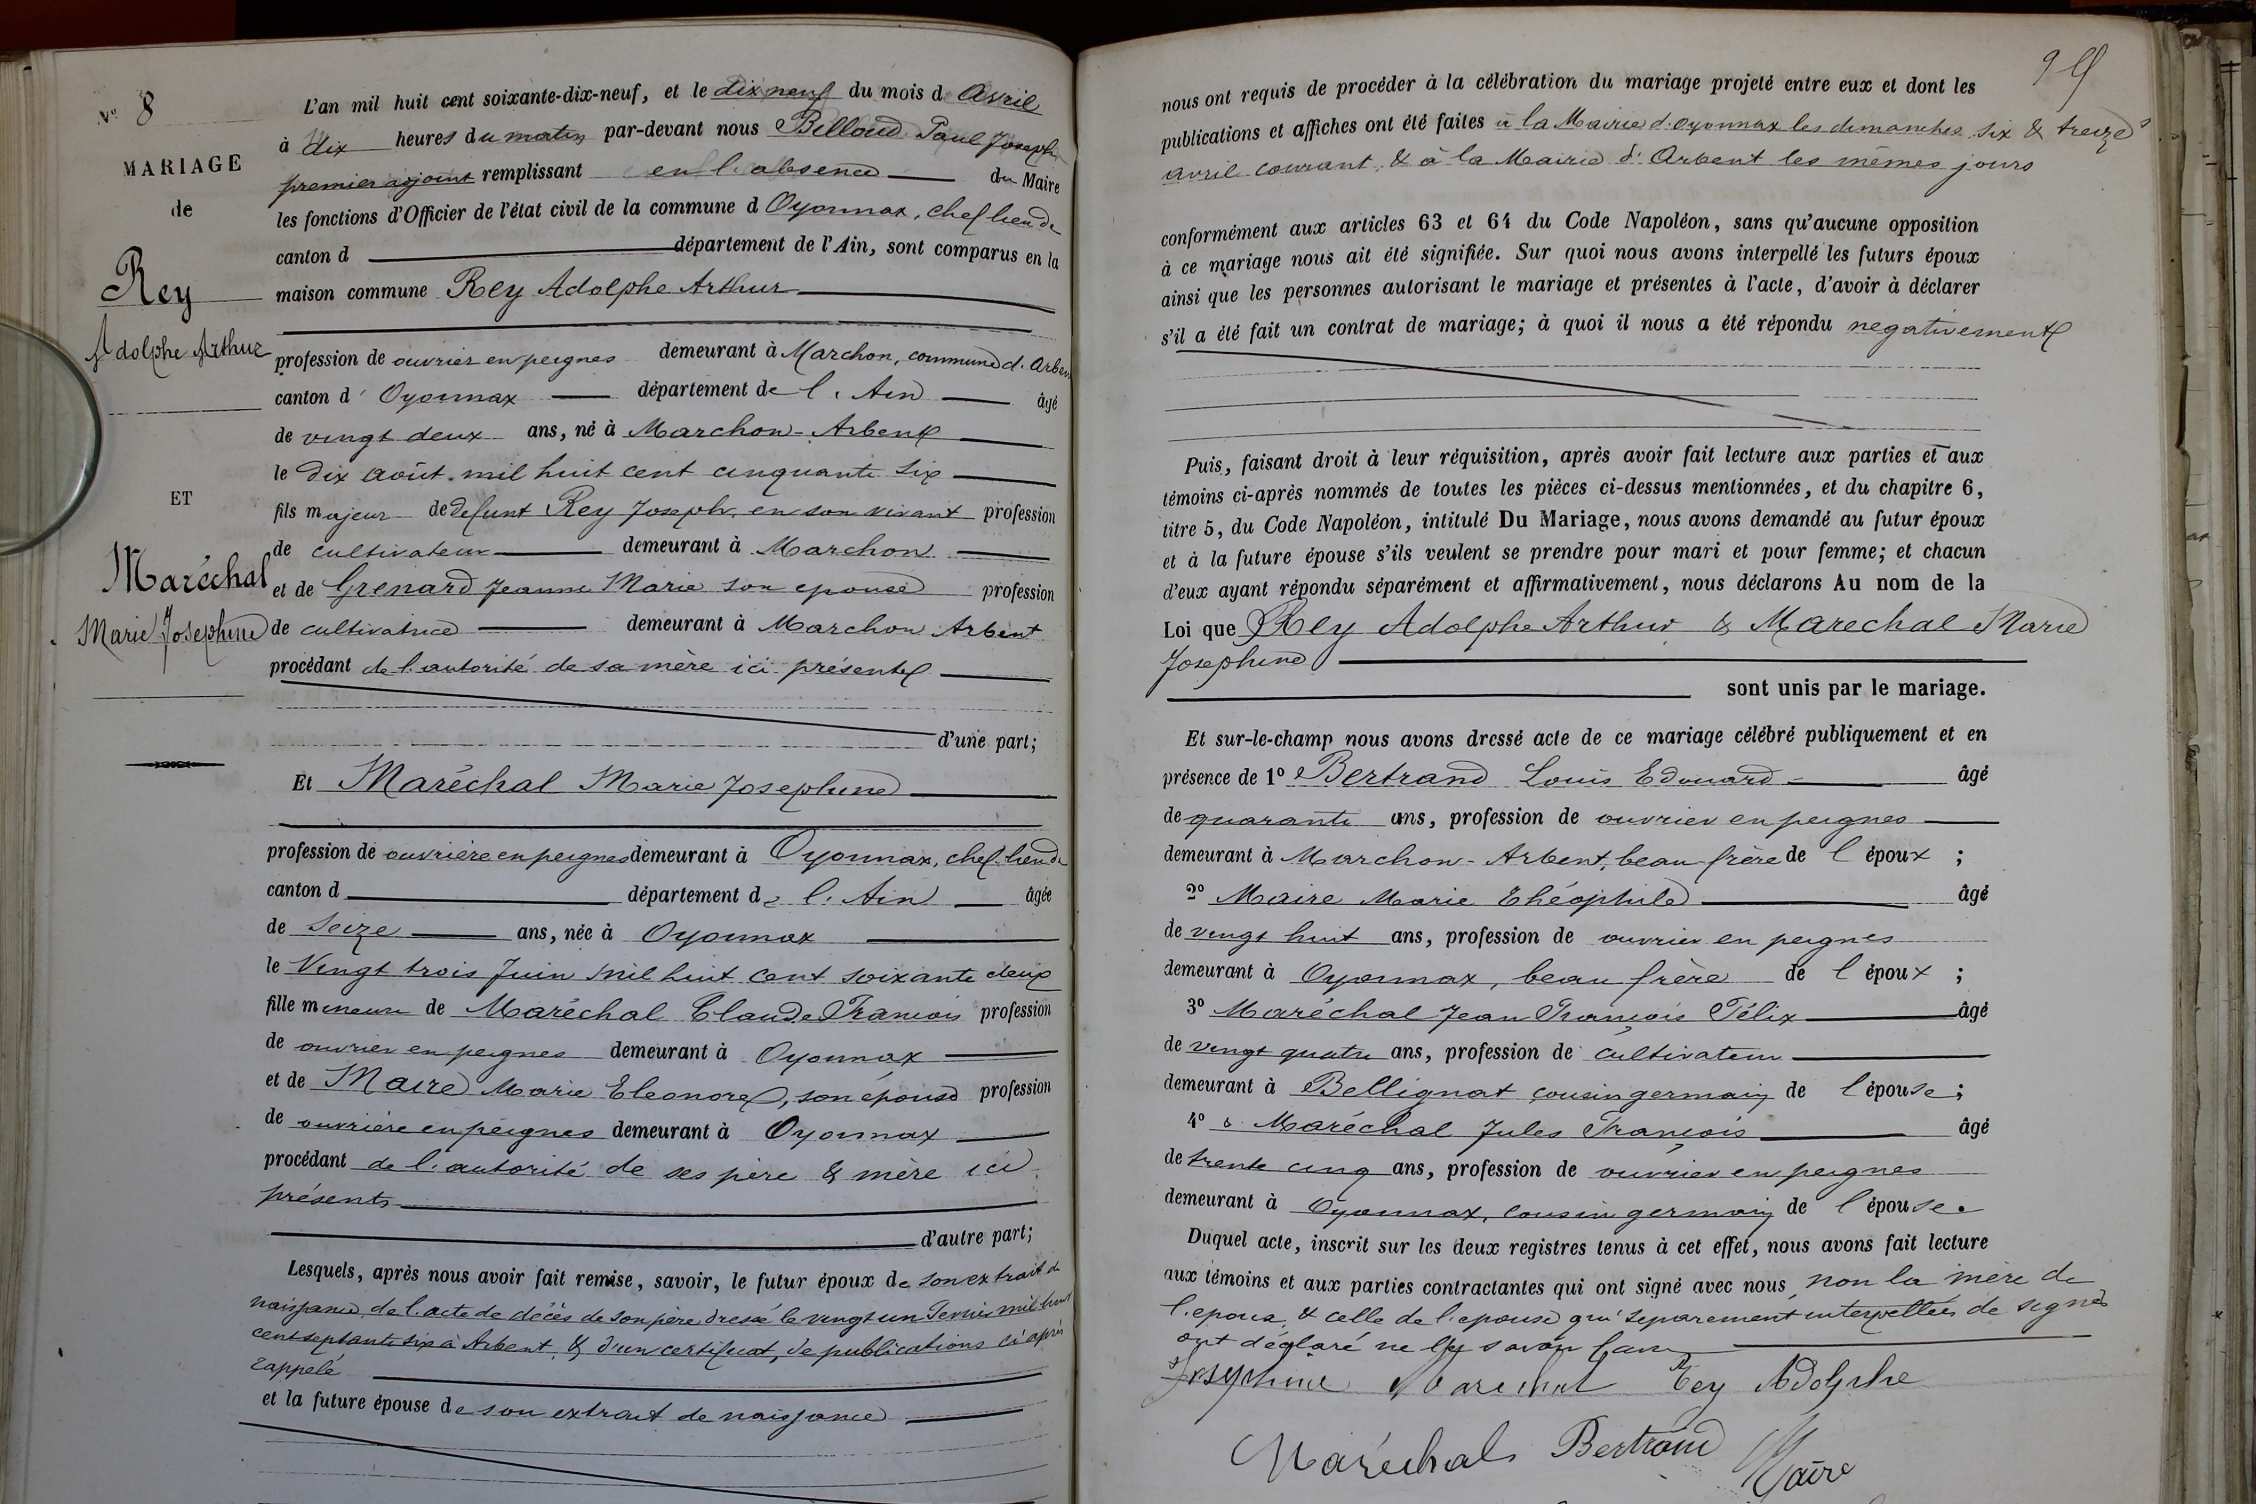 N° 8
MARIAGE
de
Rey
Adolphe Arthur
ET
Maréchal
Marie Josephine
L'an mil huit cent soixante-dix-neuf, et le dix neuf du mois d Avril
à dix heures du matin par-devant nous Billoud Paul Joseph
premier adjoint remplissant en l'absence du Maire
les fonctions d'Officier de l'état civil de la commune d Oyonnax, chef lieu de
canton d département de l'Ain, sont comparus en la
maison commune Rey Adolphe Arthur
profession de ouvrier en peignes demeurant à Marchon, commune d'Arbent
canton d' Oyonnax département de l'Ain âgé
de vingt deux ans, né à Marchon-Arbent
le dix août mil huit cent cinquante six
fils majeur de defunt Rey Joseph en son vivant profession
de cultivateur demeurant à Marchon
et de Grenard Jeanne Marie son epouse profession
de cultivatrice demeurant à Marchon Arbent
procédant de l'autorité de sa mère ici présente
d'une part;
Et Maréchal Marie Josephine
profession de ouvrière en peignes demeurant à Oyonnax, chef lieu de
canton d département de l'Ain âgée
de seize ans, née à Oyonnax
le Vingt trois Juin mil huit cent soixante deux
fille mineure de Maréchal Claude François profession
de ouvrier en peignes demeurant à Oyonnax
et de Maire Marie Eleonore, son épouse profession
de ouvrière en peignes demeurant à Oyonnax
procédant de l'autorité de ses père & mère ici
présents
d'autre part;
Lesquels, après nous avoir fait remise, savoir, le futur époux de son extrait de
naissance, de l'acte de décès de son père dressé le vingt un mil huit
cent septante six à Arbent, & d'un certificat de publications ci après
rappelé
et la future épouse de son extrait de naissance
nous ont requis de procéder à la célébration du mariage projeté entre eux et dont les
publications et affiches ont été faites à la Mairie d'Oyonnax les dimanches six & treize
avril courant, & à la Mairie d'Arbent les mêmes jours
conformément aux articles 63 et 64 du Code Napoléon, sans qu'aucune opposition
à ce mariage nous ait été signifiée. Sur quoi nous avons interpellé les futurs époux
ainsi que les personnes autorisant le mariage et présentes à l'acte, d'avoir à déclarer
s'il a été fait un contrat de mariage; à quoi il nous a été répondu negativement
Puis, faisant droit à leur réquisition, après avoir fait lecture aux parties et aux
témoins ci-après nommés de toutes les pièces ci-dessus mentionnées, et du chapitre 6,
titre 5, du Code Napoléon, intitulé Du Mariage, nous avons demandé au futur époux
et à la future épouse s'ils veulent se prendre pour mari et pour femme; et chacun
d'eux ayant répondu séparément et affirmativement, nous déclarons Au nom de la
Loi que Rey Adolphe Arthur & Marechal Marie
Josephine
sont unis par le mariage.
Et sur-le-champ nous avons dressé acte de ce mariage célébré publiquement et en
présence de 1° Bertrand Louis Edouard âgé
de quarante ans, profession de ouvrier en peignes
demeurant à Marchon-Arbent, beau frère de l époux ;
2° Maire Marie Théophile âgé
de vingt huit ans, profession de ouvrier en peignes
demeurant à Oyonnax, beau frère de l époux ;
3° Maréchal Jean François Félix âgé
de vingt quatre ans, profession de cultivateur
demeurant à Bellignat cousin germain de l épouse ;
4° & Maréchal Jules François âgé
de trente cinq ans, profession de ouvrier en peignes
demeurant à Oyonnax, cousin germain de l épouse.
Duquel acte, inscrit sur les deux registres tenus à cet effet, nous avons fait lecture
aux témoins et aux parties contractantes qui ont signé avec nous, non la mère de
l'epoux & celle de l'epouse qui séparement interpellées de signer
ont déclaré ne le savoir faire
Josephine Marechal Rey Adolphe
Maréchal Bertrand Maire